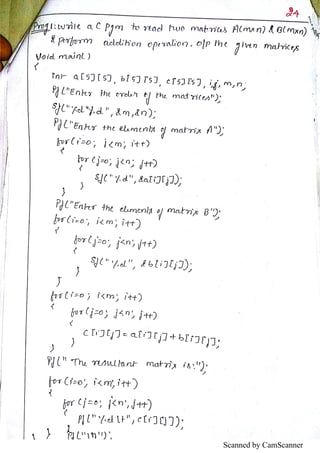 24
Prog1: write a C pgm to read two matrices A(mxn) & B(mxn)
& perform addition operation. o/p the given matrices
Void main()
{
int a[5][5], b[5][5], c[5][5], i,j, m,n;
Pf("Enter the order of the matrices");
Sf("%d%d", &m,&n);
Pf("Enter the elements of matrix A");
for(i=0; i<m; i++)
{
for(j=0; j<n; j++)
{
Sf("%d", &a[i][j]);
}
}
Pf("Enter the elements of matrix B");
for(i=0; i<m; i++)
{
for(j=0; j<n; j++)
{
Sf("%d", &b[i][j]);
}
}
for(i=0; i<m; i++)
{
for(j=0; j<n; j++)
{
c[i][j] = a[i][j] + b[i][j];
}
}
Pf("The resultant matrix is:");
for(i=0; i<m; i++)
{
for(j=0; j<n; j++)
{
Pf("%d\t", c[i][j]);
}
Pf("\n");
Scanned by CamScanner